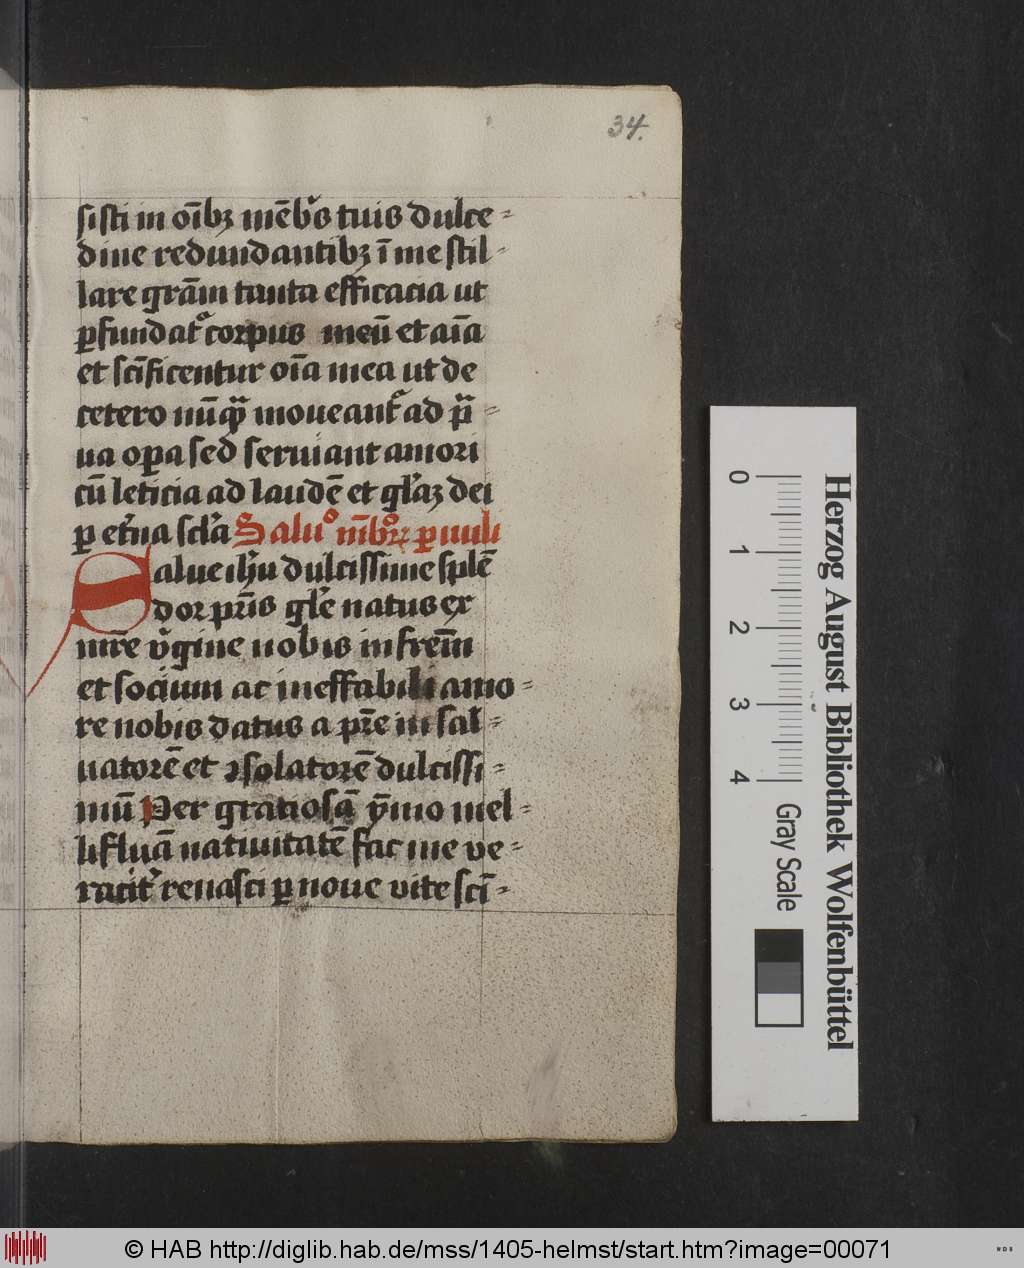 34.
sisti in oı̄bꝫ mēbꝰs tuis dulce⸗
dine redundantibꝫ ī me stil⸗
lare grām tanta efficacia ut
ꝑfundatᷣ corpus meū et aīa
et scīficentur oīa mea ut de
cetero nūqᷓ moueantᷣ ad pᷓ⸗
ua oꝑa sed seruiant amori
cū leticia ad laudē et glᷓaꝫ dei
ꝑ et̄na sclᷓa Saluᵒ mēbꝝ ꝑuuli
Salue ihū dulcissime splē
dor pr̄is glᷓe natus ex
mr̄e v̾gine nobis in frem̄
et socium ac ineffabili amo⸗
re nobis datus a pr̄e in sal⸗
uatorē et ꝯsolatorē dulcissi⸗
mū Per gratiosā ym̄o mel⸗
lifluā natiuitatē fac me ve⸗
racit᷑ renasci ꝑ noue vite scī⸗
Herzog August Bibliothek Wolfenbüttel
0 1 2 3 4
Gray Scale
© HAB http://diglib.hab.de/mss/1405-helmst/start.htm?image=00071